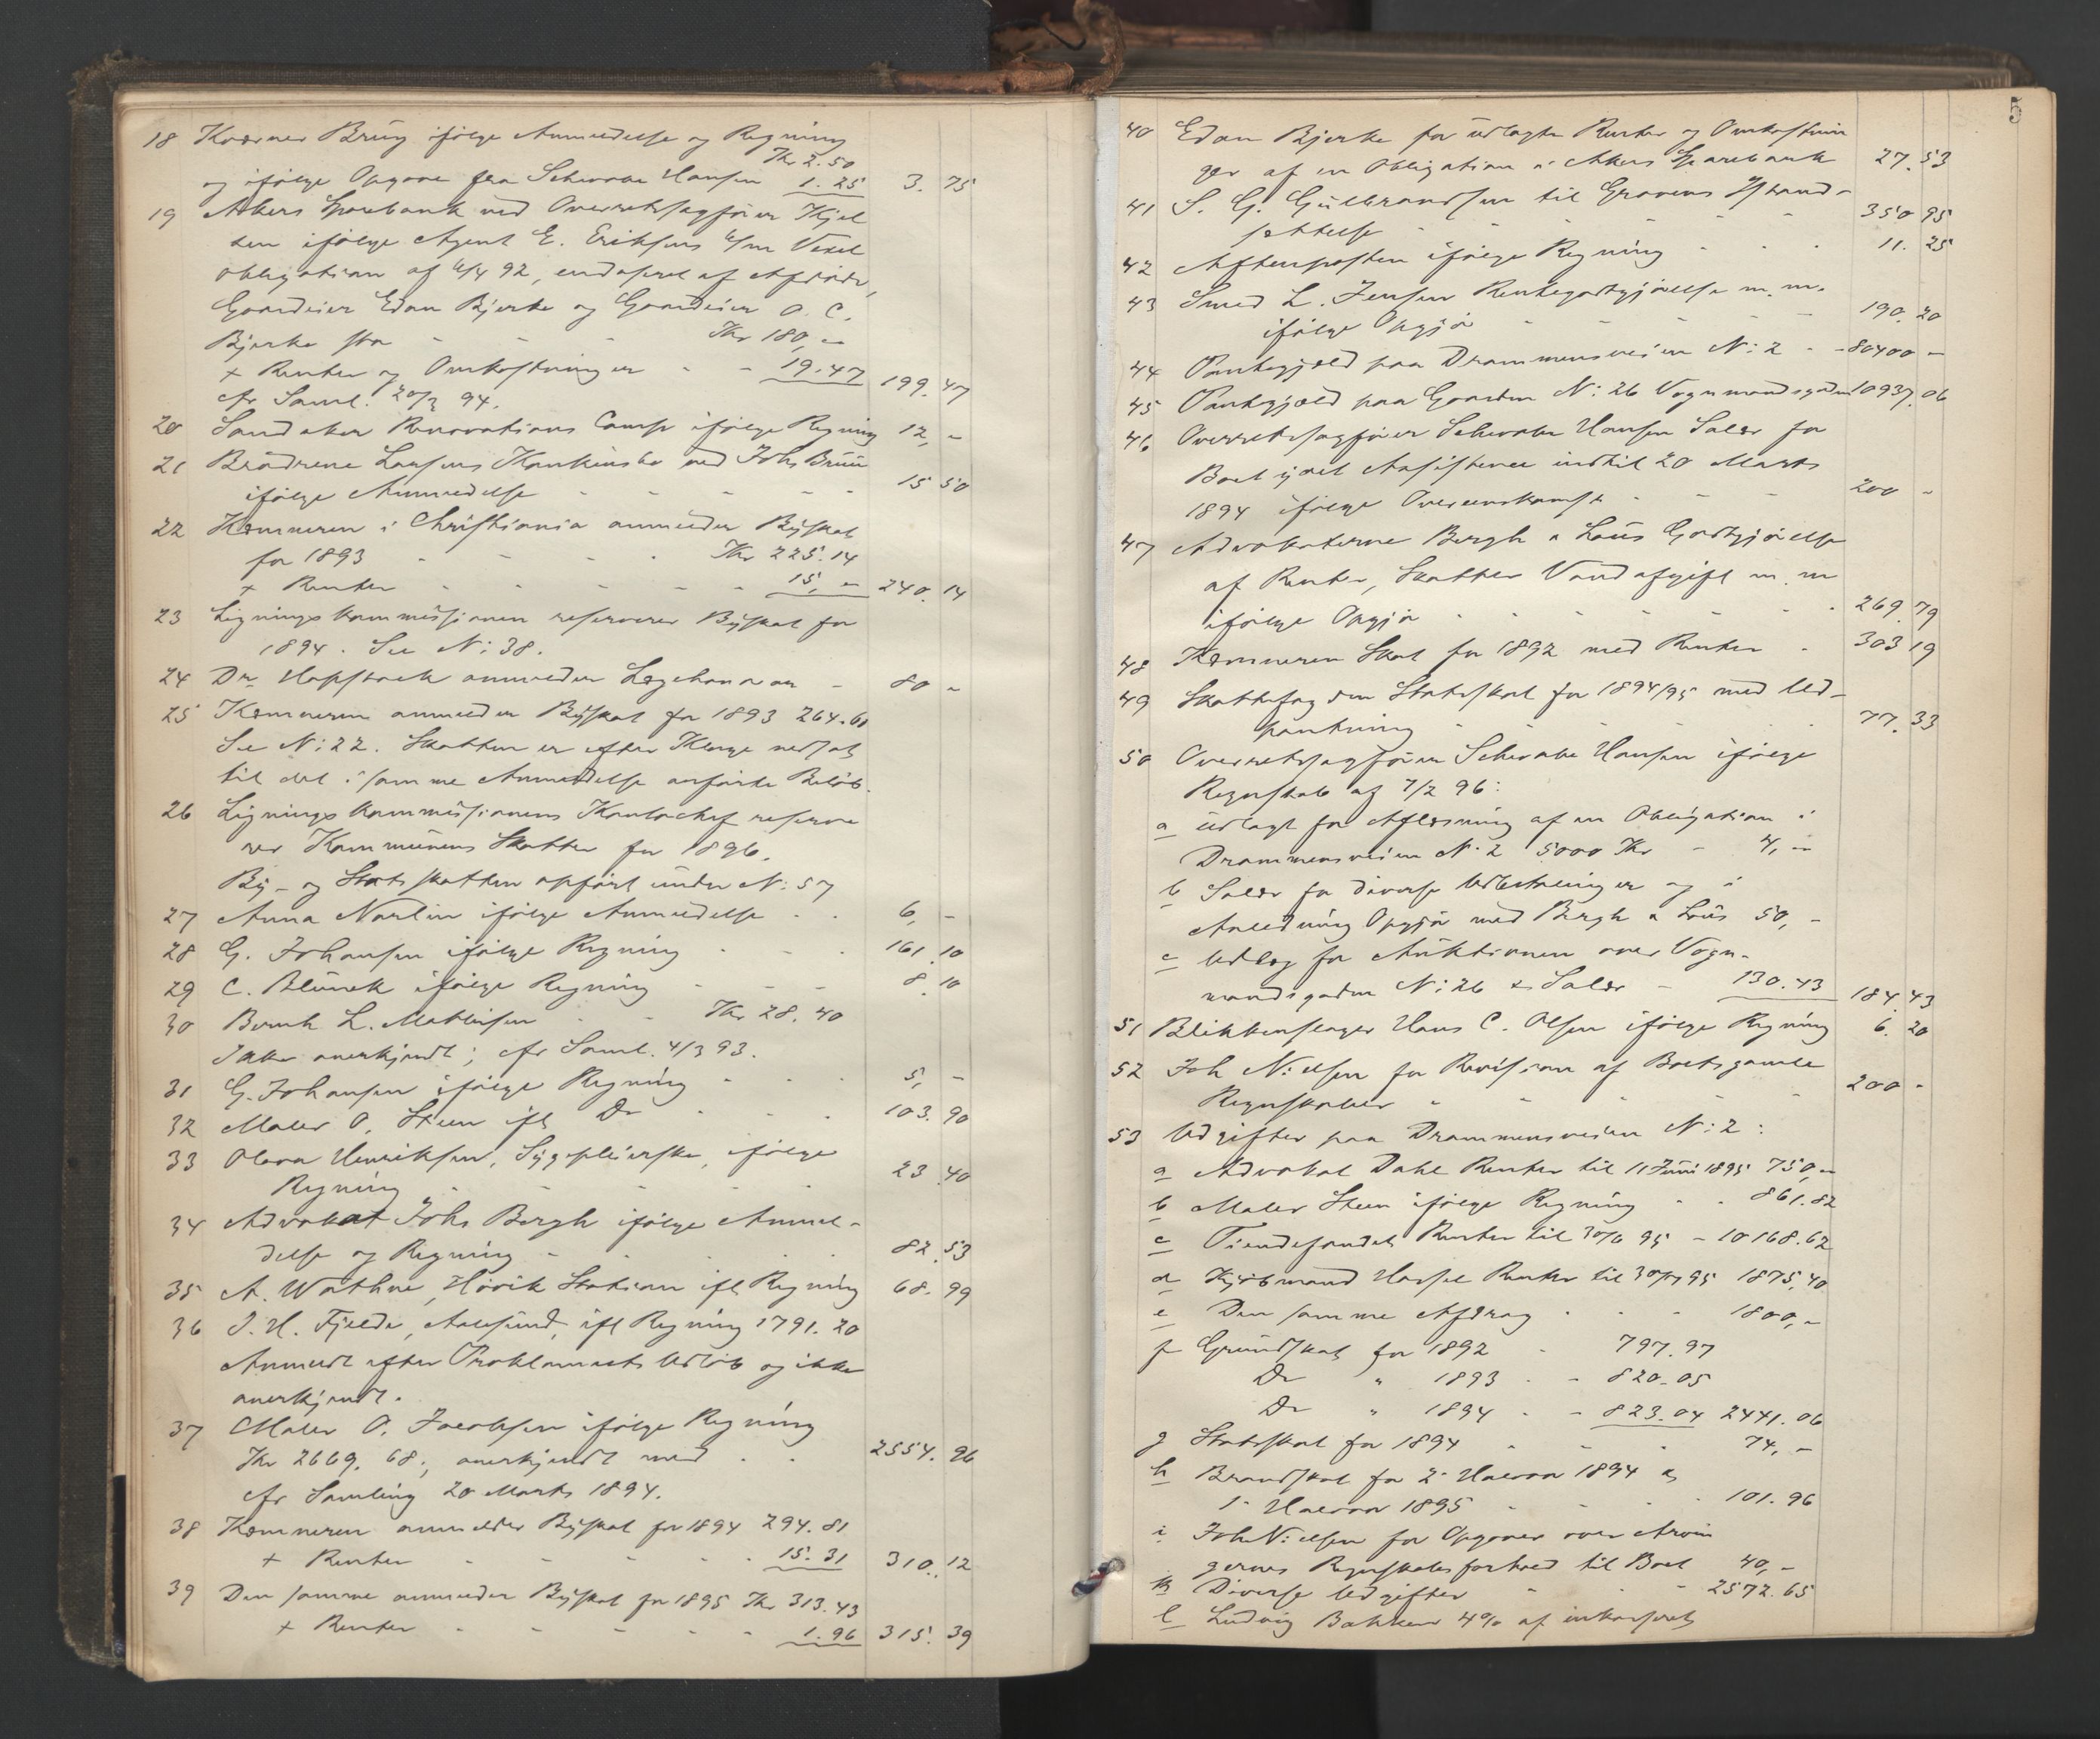 18 Kværner Brug ifølge Anmeldelse og Regning
Kr 2.50
og ifølge Opgave fra Schwabe Hansen 1.25 3.75
19 Akers Sparebank ved Overretssagfører Kjel
sen ifølge Agent E. Eriksens 6/m Vexel
obligation af 6/4 92, endosseret af Afdøde,
Gaardeier Edan Bjerke og Gaardeier O. C.
Bjerke stor - - - Kr 180,-
+ Renter og Omkostninger - - 19.47 199.47
cfr Saml. 20/3 94.
20 Sandaker Renovations Comp ifølge Regning 12,-
21 Brødrene Larsens Konkursbo ved Johs Bruu
ifølge Anmeldelse - - - - - 15 50
22 Kæmneren i Christiania anmelder Byskat
for 1893 - - - - Kr 225.14
+ Renter - - - - - 15,- 240.14
23 Ligningskommissionen reserverer Byskat for
1894. See N: 38.
24 Dr. Hopstock anmelder Lægehonorar - 80 -
25 Kæmneren anmelder Byskat for 1893 264.61
See N: 22. Skatten er efter Klage nedsat
til det i samme Anmeldelse anførte Beløb.
26 Ligningskommissionens Kontorchef reserve
rer Kommunens Skatter for 1896.
By- og Statsskatten opført under N: 57
27 Anna Norlin ifølge Anmeldelse - - 6,-
28 G. Johansen ifølge Regning - - - 161.10
29 C. Blunck ifølge Regning - - - 8.10
30 Bernh L. Mathisen - - Kr 28.40
Ikke anerkjendt; cfr Saml. 4/3 93.
31 G. Johansen ifølge Regning - - - 5,-
32 Maler O. Steen ifl Do - - - 103.90
33 Olava Henriksen, Sygepleierske, ifølge
Regning - - - - - 23.40
34 Advokat Johs Bergh ifølge Anmel-
delse og Regning - - - - 82.53
35 A. Wathne, Høvik Station ifl Regning 68.99
36 J. H. Fjelde, Aalesund, ifl Regning 1791.20
Anmeldt efter Proklamaets Udløb og ikke
anerkjendt.
37 Maler O. Jacobsen ifølge Regning
Kr 2669.68; anerkjendt med - - 2554.96
cfr Samling 20 Marts 1894.
38 Kæmneren anmelder Byskat for 1894 294.81
+ Renter - - - - - 15.31 310.12
39 Den samme anmelder Byskat for 1895 Kr 313.43
+ Renter - - - - - 1.96 315.39
5
40 Edan Bjerke for udlagte Renter og Omkostnin
ger af en Obligation i Akers Sparebank 27.53
41 S. G. Gulbrandsen til Gravens Istand-
sættelse - - - - - 350 95
42 Aftenposten ifølge Regning - - - 11.25
43 Smed L. Jensen Rentegodtgjørelse m.m.
ifølge Opgjør - - - - - 190.20
44 Pantegjæld paa Drammensveien N: 2 - -80400 -
45 Pantegjæld paa Gaarden N: 26 Vognmandsgaden 10937.06
46 Overretssagfører Schwabe Hansen Salær for
Boet ydet Assistence indtil 20 Marts
1894 ifølge Overenskomst - - - 200 -
47 Advokaterne Bergh & Lous Godtgjørelse
af Renter, Skatter Vandafgift m.m
ifølge Opgjør - - - - - 269.79
48 Kæmneren Skat for 1892 med Renter - 303 19
49 Skattefogden Statsskat for 1894/95 med Ud-
pantning - - - - - 77.33
50 Overretssagfører Schwabe Hansen ifølge
Regnskab af 7/2 96:
a udlagt for Aflæsning af en Obligation i
Drammensveien N: 2 5000 Kr - 4,-
b Salær for diverse Udbetalinger og i
Anledning Opgjør med Bergh & Lous 50,-
c Udlæg for Auktionen over Vogn-
mandsgaden N: 26 & Salær - 130.43 184.43
51 Blikkenslager Hans C. Olsen ifølge Regning 6.20
52 Joh Nielsen for Revision af Boets gamle
Regnskaber - - - - - 200 -
53 Udgifter paa Drammensveien N: 2:
a Advokat Dahl Renter til 11 Juni 1895 750,-
b Maler Steen ifølge Regning - - 861.82
c Tiendefondet Renter til 30/6 95 - 10168.62
d Kjøbmand Hassel Renter til 30/7 95 1875,40
e Den samme Afdrag - - - 1800,-
f Grundskat for 1892 - 797.97
Do " 1893 - - 820.05
Do " 1894 - - 823.04 2441.06
g Statsskat for 1894 - - - 74,-
h Brandskat for 2. Halvaar 1894 &
1. Halvaar 1895 - - - - 101.96
i Joh Nielsen for Opgaver over Arvin
gernes Regnskabsforhold til Boet 40,-
k Diverse Udgifter - - - 2572.65
l Ludvig Bakken 4% af inkasserede